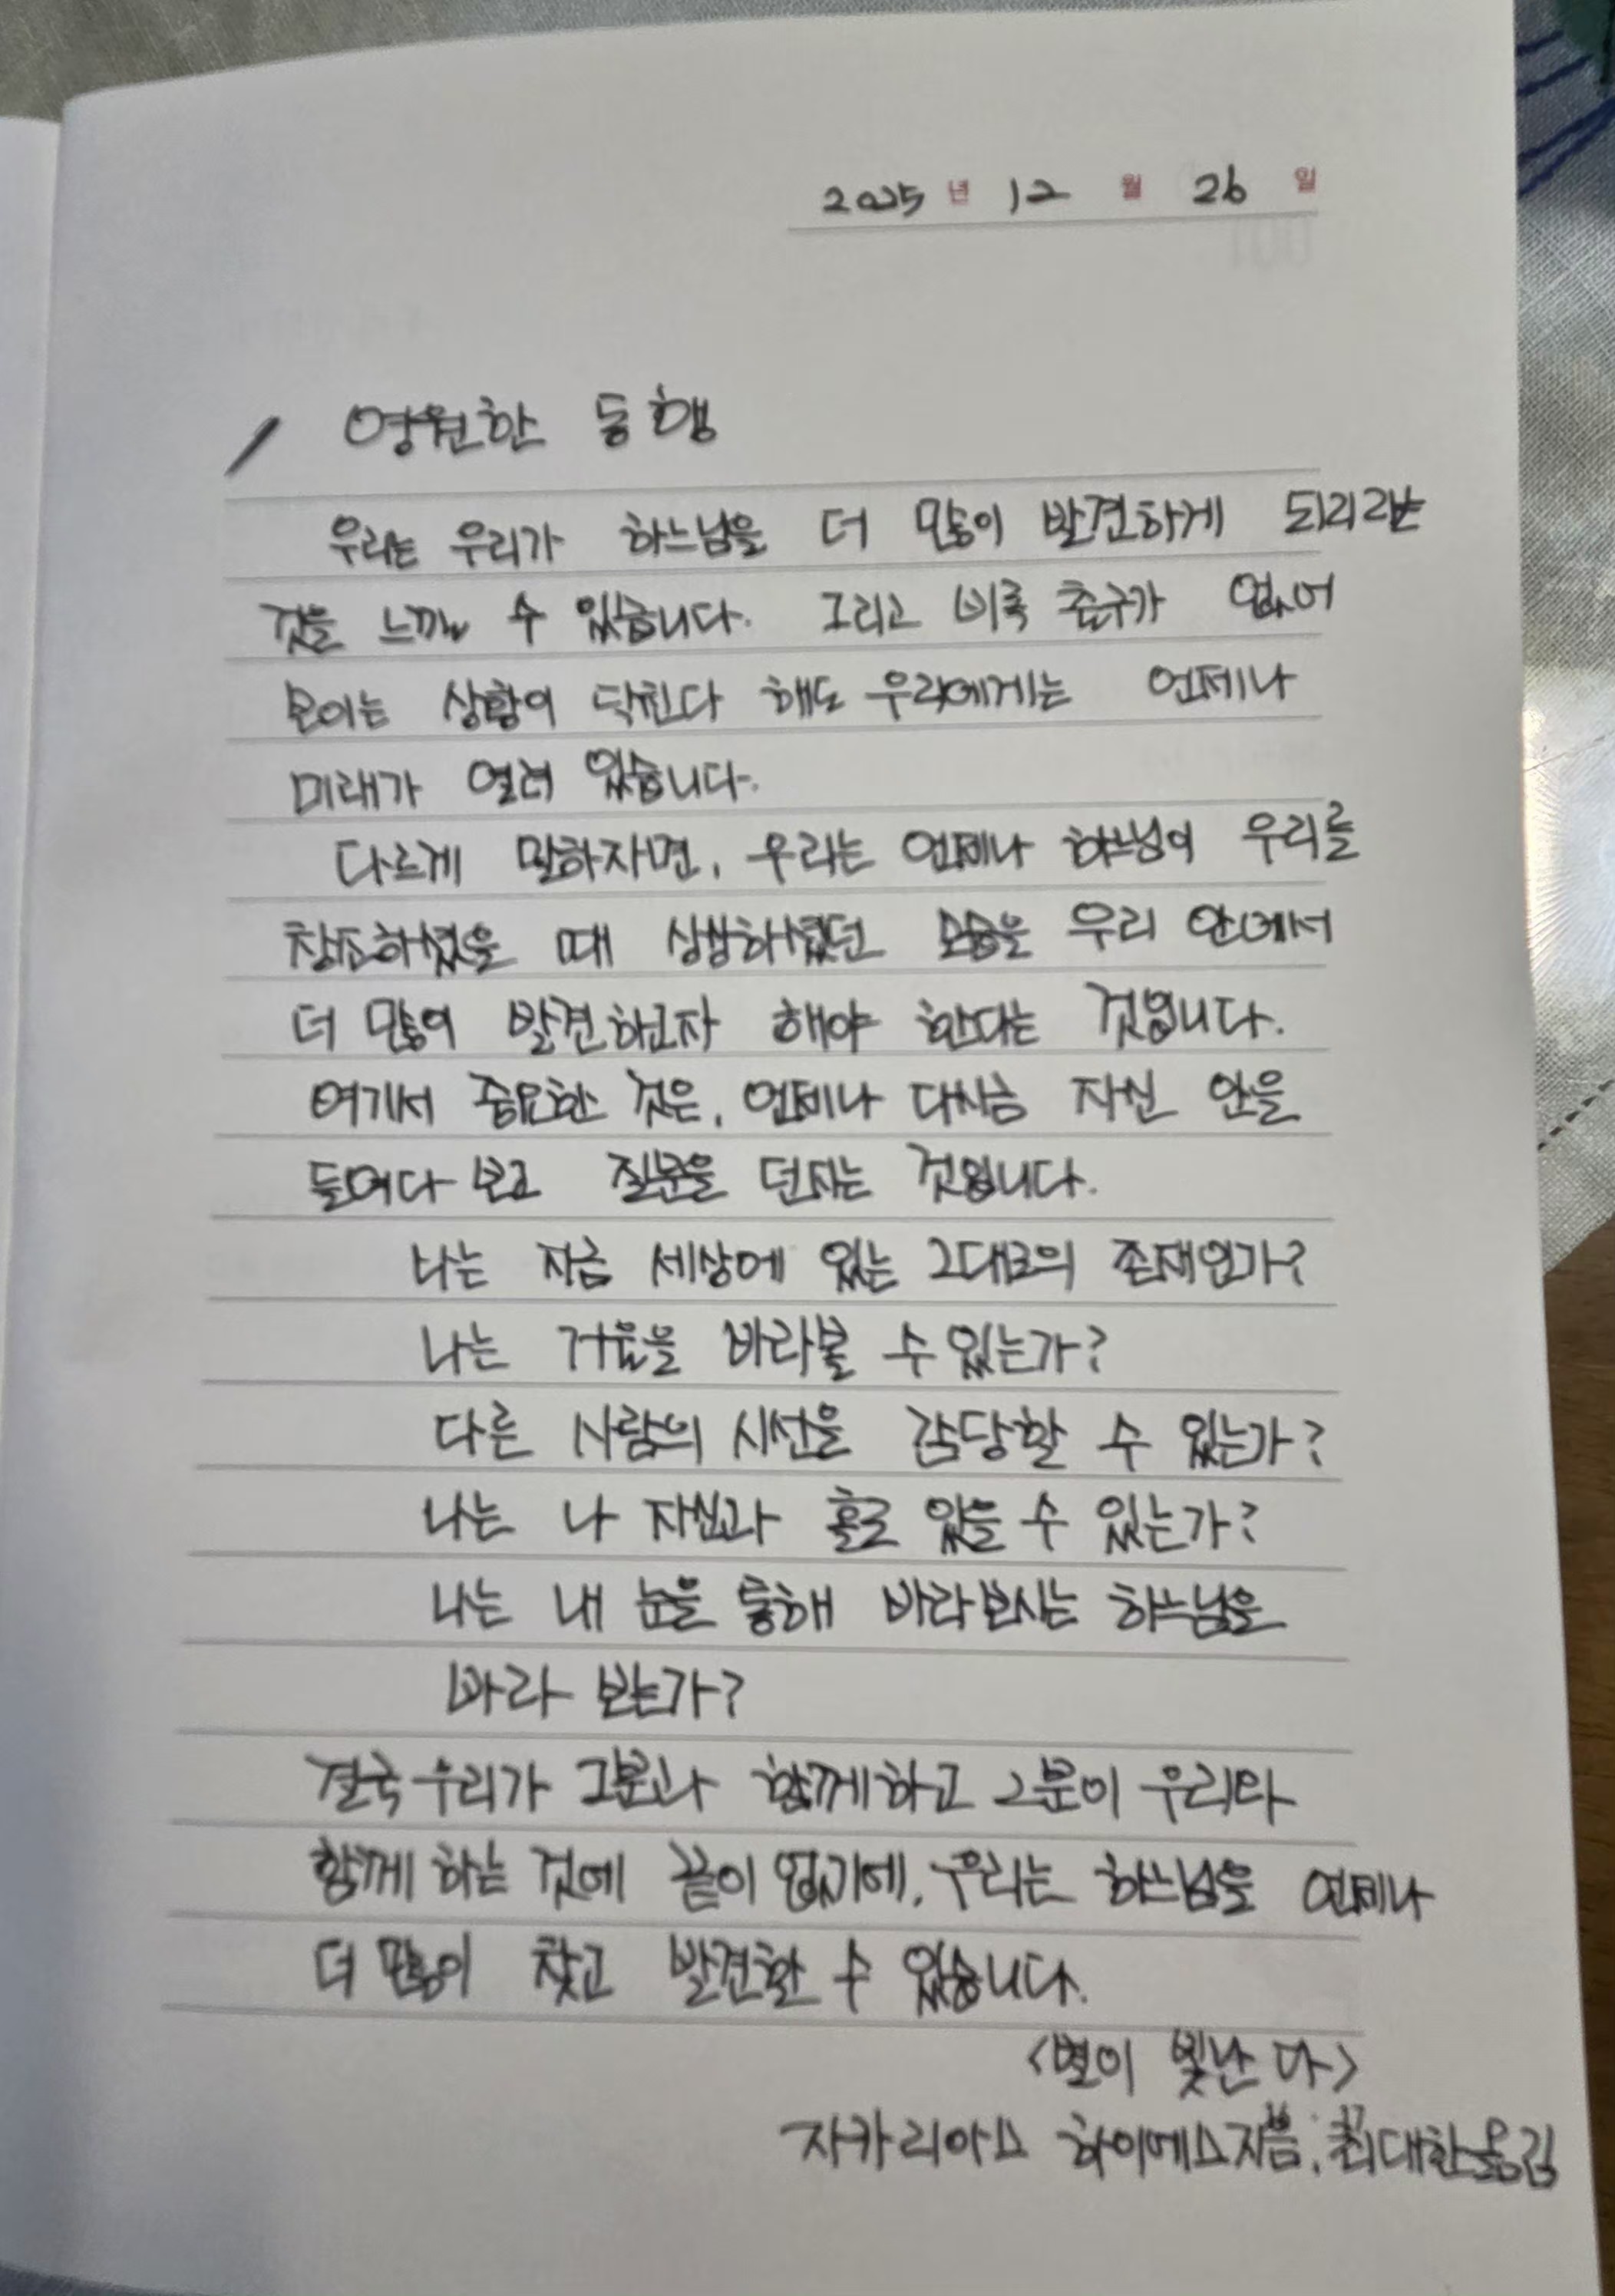 2025년 12월 26일
/ 영원한 동행
우리는 우리가 하느님을 더 많이 발견하게 되리라는
것을 느낄 수 있습니다. 그리고 비록 출구가 없어
보이는 상황이 닥친다 해도 우리에게는 언제나
미래가 열려 있습니다.
다르게 말하자면, 우리는 언제나 하느님이 우리를
창조하셨을 때 상상하셨던 모습을 우리 안에서
더 많이 발견하고자 해야 한다는 것입니다.
여기서 중요한 것은, 언제나 다시금 자신 안을
들여다 보고 질문을 던지는 것입니다.
나는 지금 세상에 있는 그대로의 존재인가?
나는 거울을 바라볼 수 있는가?
다른 사람의 시선을 감당할 수 있는가?
나는 나 자신과 홀로 있을 수 있는가?
나는 내 눈을 통해 바라보시는 하느님을
바라 보는가?
결국 우리가 그분과 함께하고 그분이 우리와
함께 하는 것에 끝이 없기에, 우리는 하느님을 언제나
더 많이 찾고 발견할 수 있습니다.
<별이 빛난다>
자카리아스 하이에스지음, 최대환옮김